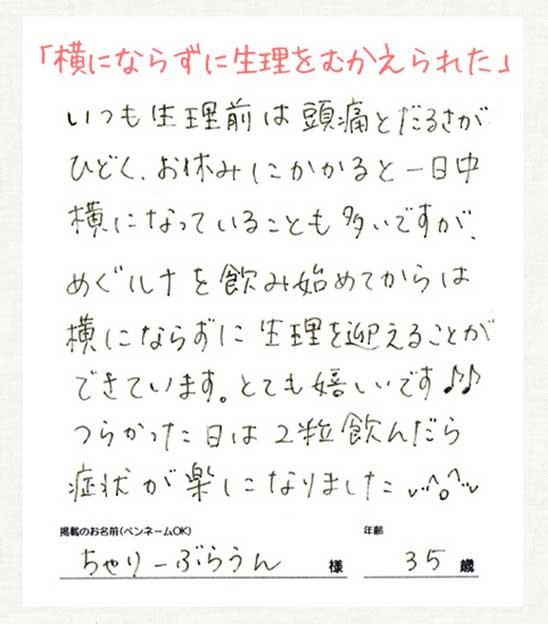 「横にならずに生理をむかえられた」
いつも生理前は頭痛とだるさが
ひどく、お休みにかかると一日中
横になっていることも多いですが、
めぐルナを飲み始めてからは
横にならずに生理を迎えることが
できています。とても嬉しいです♪♪
つらかった日は2粒飲んだら
症状が楽になりました
掲載のお名前(ペンネームOK) 年齢
ちゃりーぶらうん 様 35 歳